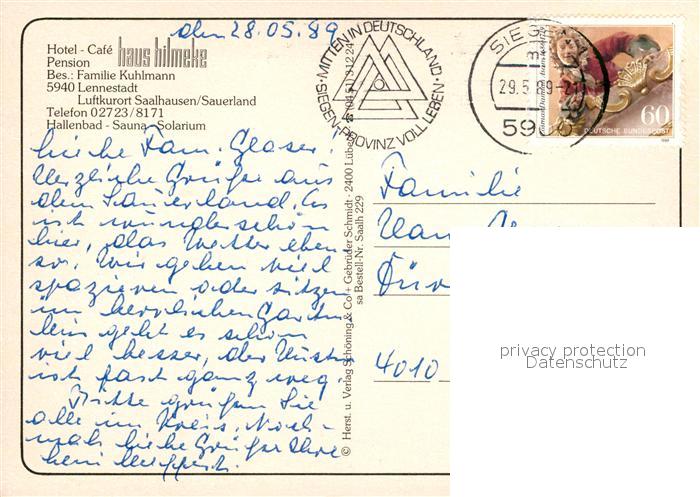 den 28.05.89
Hotel - Café haus hilmeke
Pension
Bes.: Familie Kuhlmann
5940 Lennestadt
Luftkurort Saalhausen/Sauerland
Telefon 02723/8171
Hallenbad - Sauna - Solarium
Liebe Fam. Glaser.
Herzliche Grüße aus
dem Sauerland. Es
ist wunderschön
hier, das Wetter eben
so. Wir gehen viel
spazieren oder sitzen
im herrlichen Garten.
geht es schon
viel besser, der Husten
ist fast ganz weg.
Bitte grüßen Sie
alle im Kreis. Noch-
mals liebe Grüße Ihre
© Herst. u. Verlag Schöning & Co + Gebrüder Schmidt · 2400 Lübeck
sa Bestell-Nr. Saalh 229
SIEGEN · MITTEN IN DEUTSCHLAND ·
PROVINZ VOLL LEBEN ·
SIEGEN
29.5.89-21
5900
60
DEUTSCHE BUNDESPOST
Familie
4010
privacy protection
Datenschutz